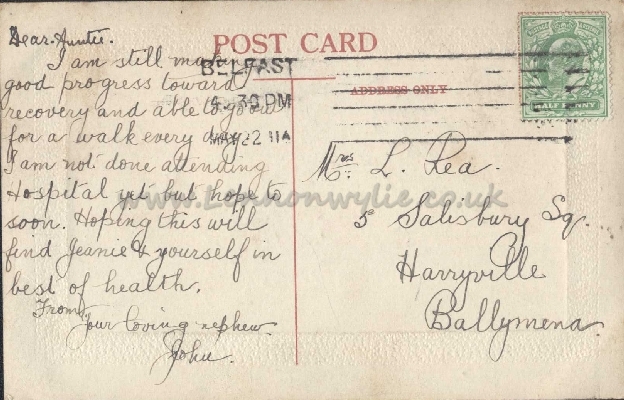 POST CARD
Dear Auntie.
I am still making
good progress toward
recovery and able to go out
for a walk every day.
I am not done attending
Hospital yet but hope to
soon. Hoping this will
find Jeanie & yourself in
best of health.
From
Your loving nephew.
John.
BELFAST
4. 30 PM
MAY 22 11A
ADDRESS ONLY
HALF PENNY
Mrs. L. Rea.
5 Salisbury Sq.
Harryville
Ballymena.